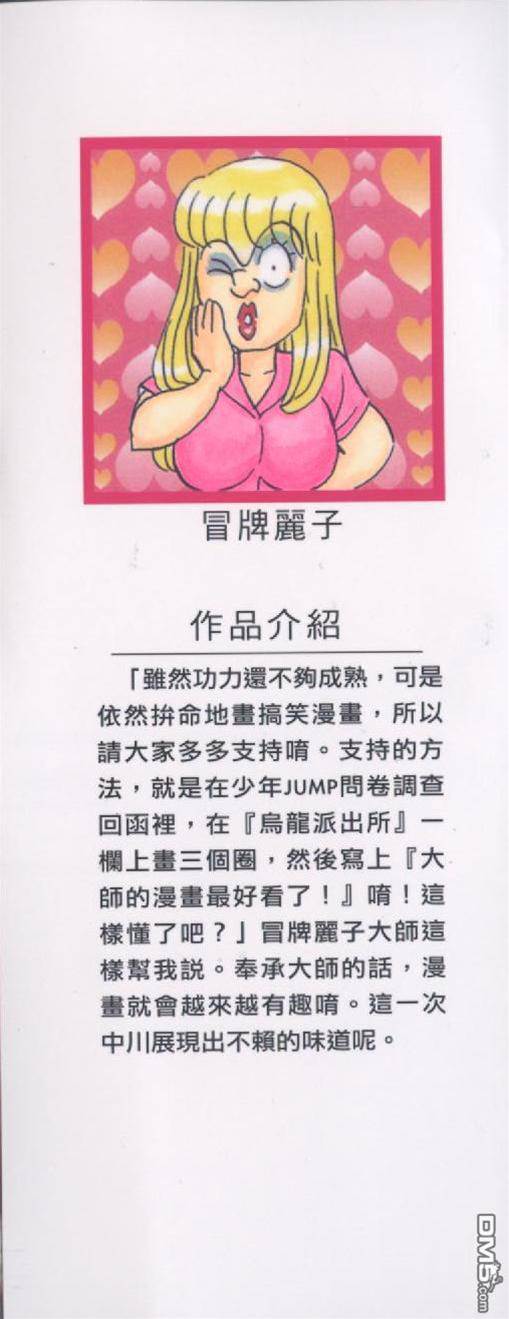 冒牌麗子
作品介紹
「雖然功力還不夠成熟，可是
依然拚命地畫搞笑漫畫，所以
請大家多多支持唷。支持的方
法，就是在少年JUMP問卷調查
回函裡，在『烏龍派出所』一
欄上畫三個圈，然後寫上『大
師的漫畫最好看了！』唷！這
樣懂了吧？」冒牌麗子大師這
樣幫我説。奉承大師的話，漫
畫就會越來越有趣唷。這一次
中川展現出不賴的味道呢。
DM5.com